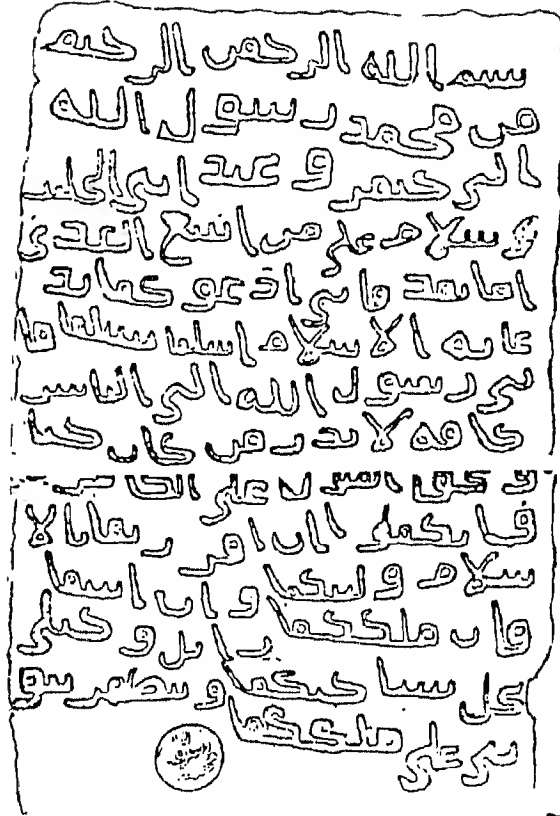 بسم الله الرحمن الرحيم
من محمد رسول الله
الى جيفر و عبد ابنى الجلند
سلام على من اتبع الهدى
اما بعد فانى ادعوكما بد
عاية الاسلام اسلما تسلما فا
نى رسول الله الى الناس
كافة لانذر من كان حيا
و يحق القول على الكافرين
فانكما ان اقررتما بالا
سلام وليتكما وان ابيتما
فان ملككما زايل و خيلى
تحل بساحتكما و تظهر نبو
تى على ملككما